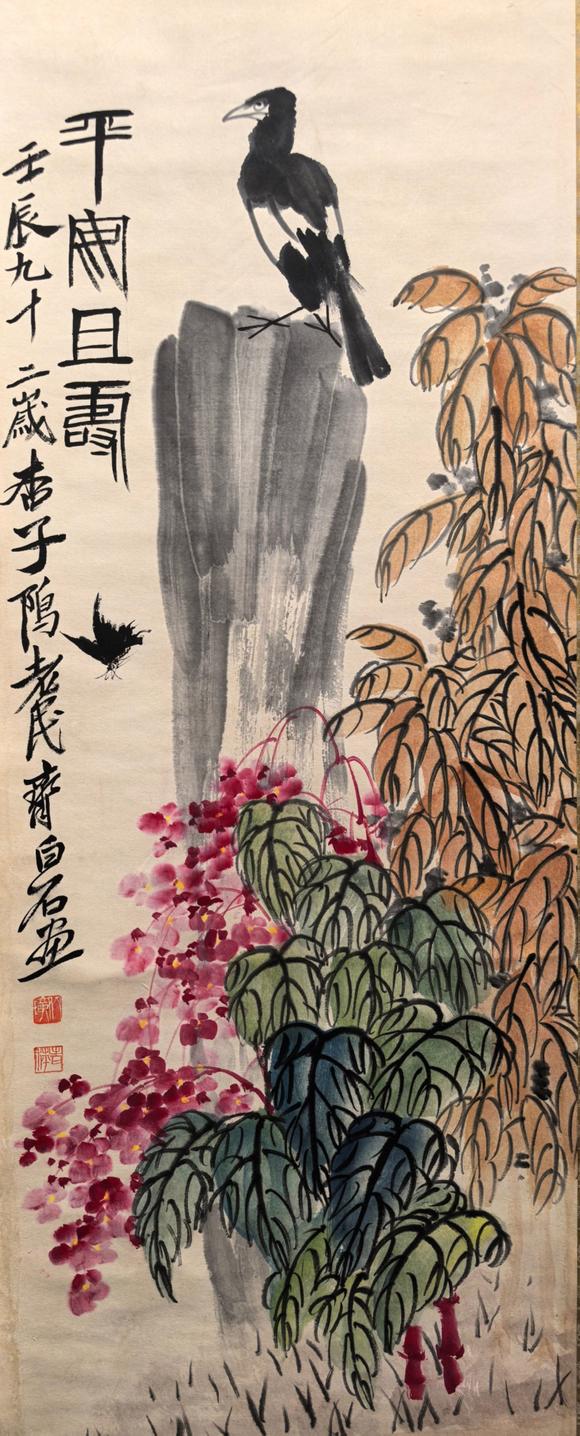 平安且壽
壬辰九十二歲杏子隖老民齊白石畫